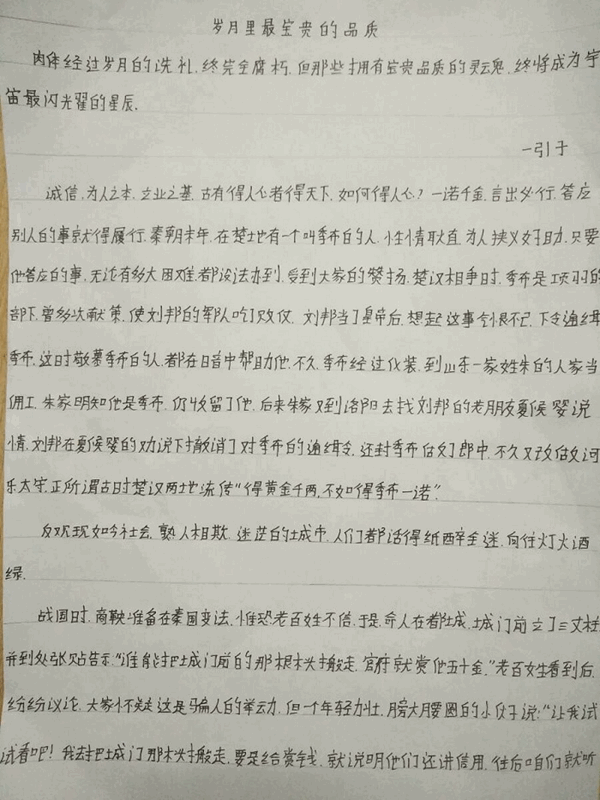 岁月里最宝贵的品质
肉体经过岁月的洗礼,终究会腐朽,但那些拥有宝贵品质的灵魂,终将成为宇
宙最闪光耀的星辰.
一引于
诚信,为人之本,立业之基.古有得人心者得天下,如何得人心?一诺千金,言出必行,答应
别人的事就得履行.秦朝末年,在楚地有一个叫季布的人,性情耿直,为人挟义好助,只要
他答应的事,无论有多大困难,都设法办到,受到大家的赞扬.楚汉相争时,季布是项羽的
部下,曾多次献策,使刘邦的军队吃了败仗.刘邦当了皇帝后,想起这事气恨不已,下令通缉
季布.这时敬慕季布的人,都在暗中帮助他.不久,季布经过化装,到山东一家姓朱的人家当
佣工.朱家明知他是季布,仍收留了他,后来朱家又到洛阳去找刘邦的老朋友夏侯婴说
情.刘邦在夏侯婴的劝说下撤消了对季布的通缉令,还封季布做了郎中,不久又改做河
东太守.正所谓古时楚汉两地流传“得黄金千两,不如得季布一诺”.
反观现如今社会,熟人相欺,迷茫的城市,人们都活得纸醉金迷,向往灯火酒
绿.
战国时,商鞅准备在秦国变法,惟恐老百姓不信,于是,命人在都城,城门前立了三丈柱,
并到处张贴告示.“谁能把城门前的那根木头搬走,官府就赏他五十金.”老百姓看到后,
纷纷议论,大家怀疑这是骗人的举动,但一个年轻力壮,膀大腰圆的小伙子说:“让我试
试看吧!我去把城门那木头搬走,要是给赏钱,就说明他们还讲信用,往后咱们就听